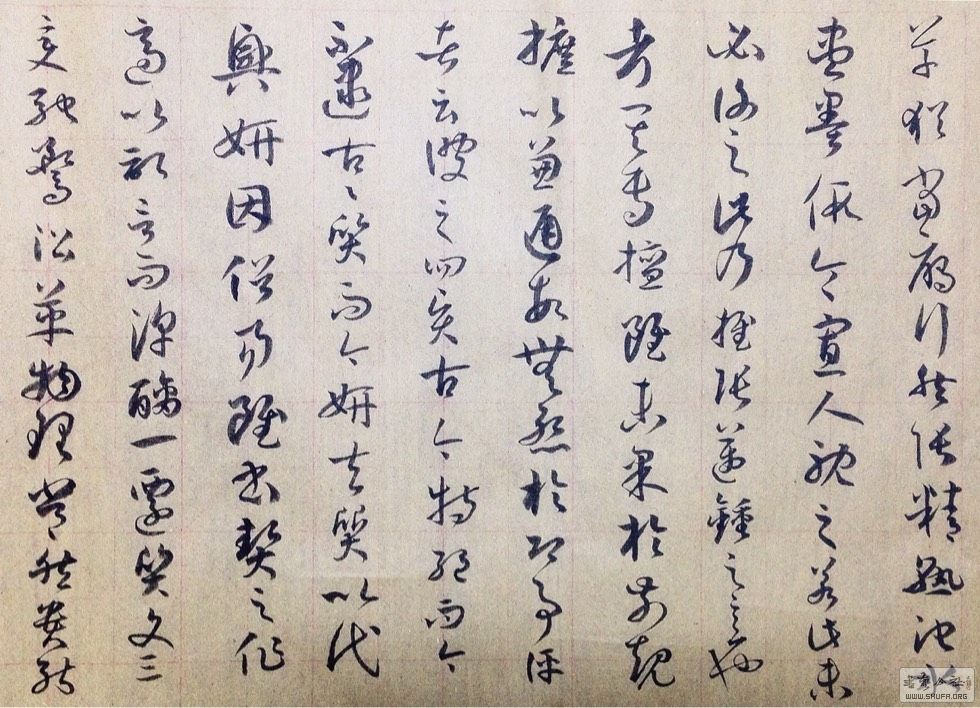 草猶當鴈行然張精熟池水
盡墨假令寡人耽之若此未
必謝之此乃推張邁鍾之意也
考其專擅雖未果於前規
摭以兼通故無慙於即事評
者云彼之四賢古今特絕而今
不逮古〻質而今妍夫質以代
興妍因俗易雖書契之作
適以記言而淳醨一遷質文三
變馳騖沿革物理常然貴能
WWW.SHUFA.ORG